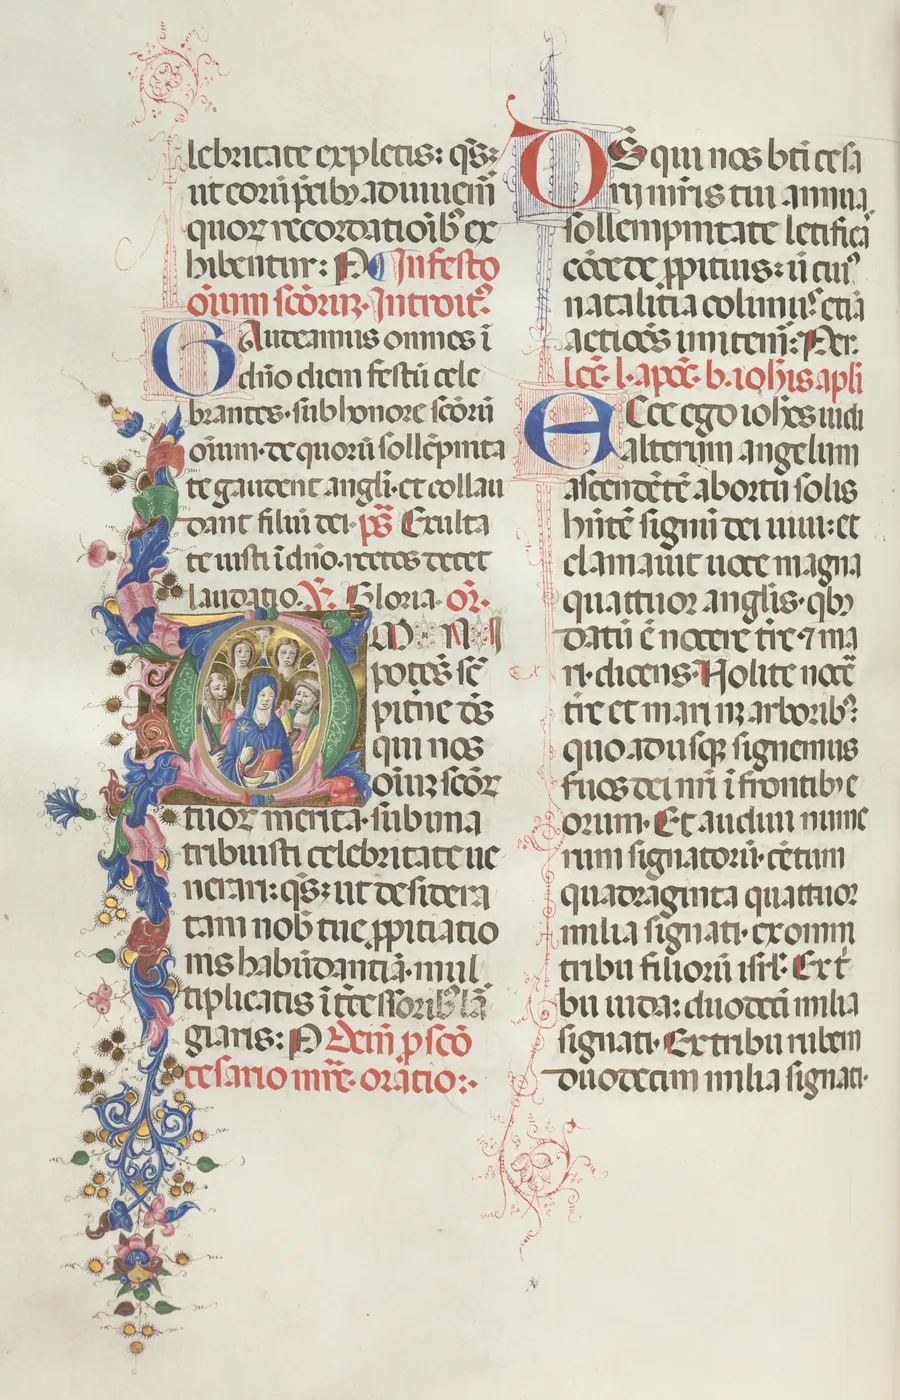 lebritate expletis: qs̄:
ut eorū p̄cib⁊ adiuuem̄
quor⁊ recordatiōib⁹ ex
hibentur: P In festo
ōium scōrum. Introit⁹.
Gaudeamus omnes ī
dn̄o diem festū cele
brantes. sub honore scōrū
ōium. de quorū sollēpnita
te gaudent angli. et collau
dant filiū dei. ps̄ Exulta
te iusti ī dn̄o. rectos decet
laudatio. V̄. Gloria. or̄.
OM̄NI
potēs sē
pit̄ne ds̄
qui nos
ōiuꝫ scōr
tuoꝝ merita. sub una
tribuisti celebritate ue
nerari: qs̄: ut desidera
tam nob̄ tue ꝓpitiatio
nis habūdantiā. mul
tiplicatis ītercessorib⁹ lā
giaris: P Deīn ꝓ scō
cesario mr̄e. oratio:.
DS qui nos bt̄i cesa
rij mr̄is tui annua
sollempnitate letifica
cōcede ꝓpitius: ū cui⁹
natalitia colimus. etiā
actiōes imitem̄: Per.
lcē. l. apoč. b. iohis apli
Ecce ego ioh̄es uidi
alterum angelum
ascendētē ab ortu solis
hn̄tē signū dei uiui: et
clamauit uoce magna
quattuor anglis. qb⁊
datū ē nocere tr̄e. ⁊ ma
ri. dicens. Nolite nocē
tr̄e et mari nꝫ arborib⁹:
quo adusqꝫ signemus
seruos dei nr̄i ī frontib⁊ e
orum. Et audiui nume
rum signatorū. cētum
quadraginta quattuor
milia signati. ex omni
tribu filiorū isrl̄. Ex t̄
bu iuda: duodeci milia
signati. Ex tribu ruben
duodecim milia signati.